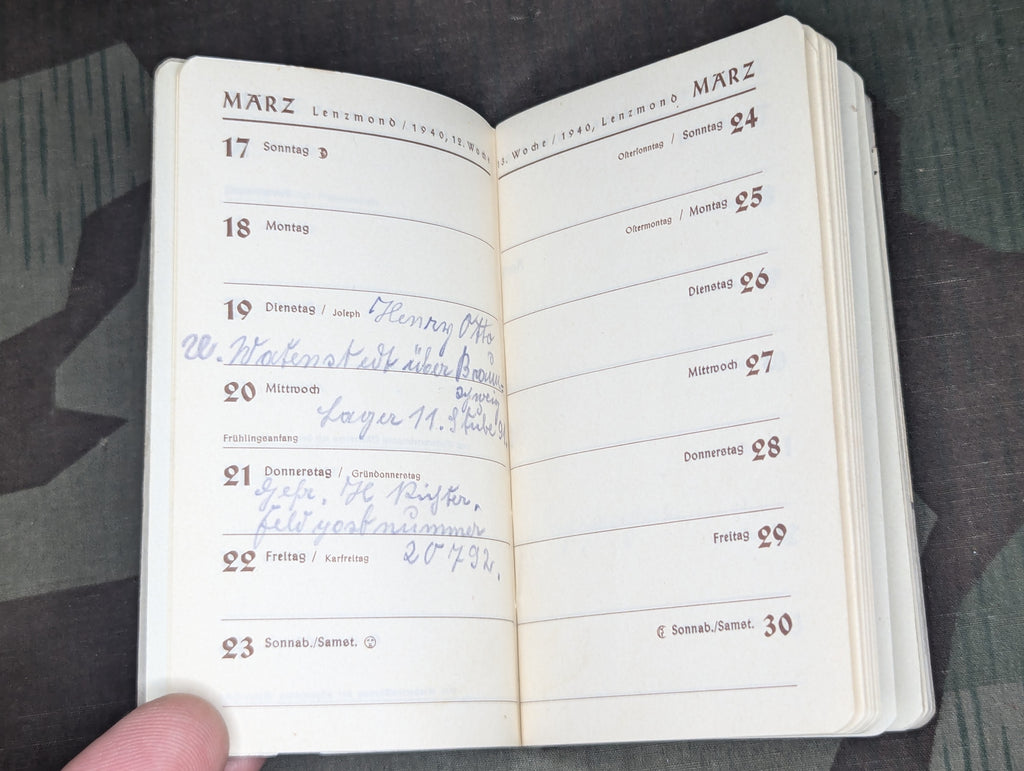 MÄRZ Lenzmond / 1940, 12. Woche
17 Sonntag
18 Montag
19 Dienstag / Joseph Henry Otto
W. Watenstedt über Braun
schweig
20 Mittwoch
Lager 11. Stube
Frühlingsanfang
21 Donnerstag / Gründonnerstag
Gefr. H Richter.
Feldpostnummer
22 Freitag / Karfreitag 20792.
23 Sonnab./Samst.
13. Woche / 1940, Lenzmond MÄRZ
Ostersonntag / Sonntag 24
Ostermontag / Montag 25
Dienstag 26
Mittwoch 27
Donnerstag 28
Freitag 29
Sonnab./Samst. 30